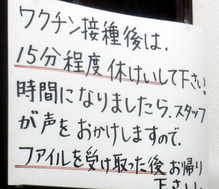 ワクチン接種後は、
15分程度休けいして下さい!
時間になりましたら、スタッフ
が声をおかけしますので、
ファイルを受け取った後お帰り
下さい